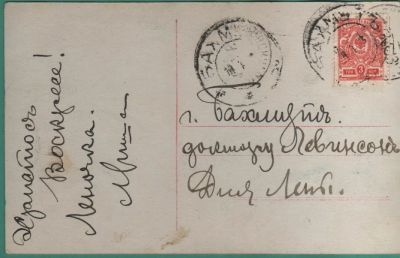 Христосъ
Воскресе!
Леночка.
БАХМУТЪ
БАХМУТЪ
3
г. Бахмутъ.
доктору Левинсонъ
Для Лены.